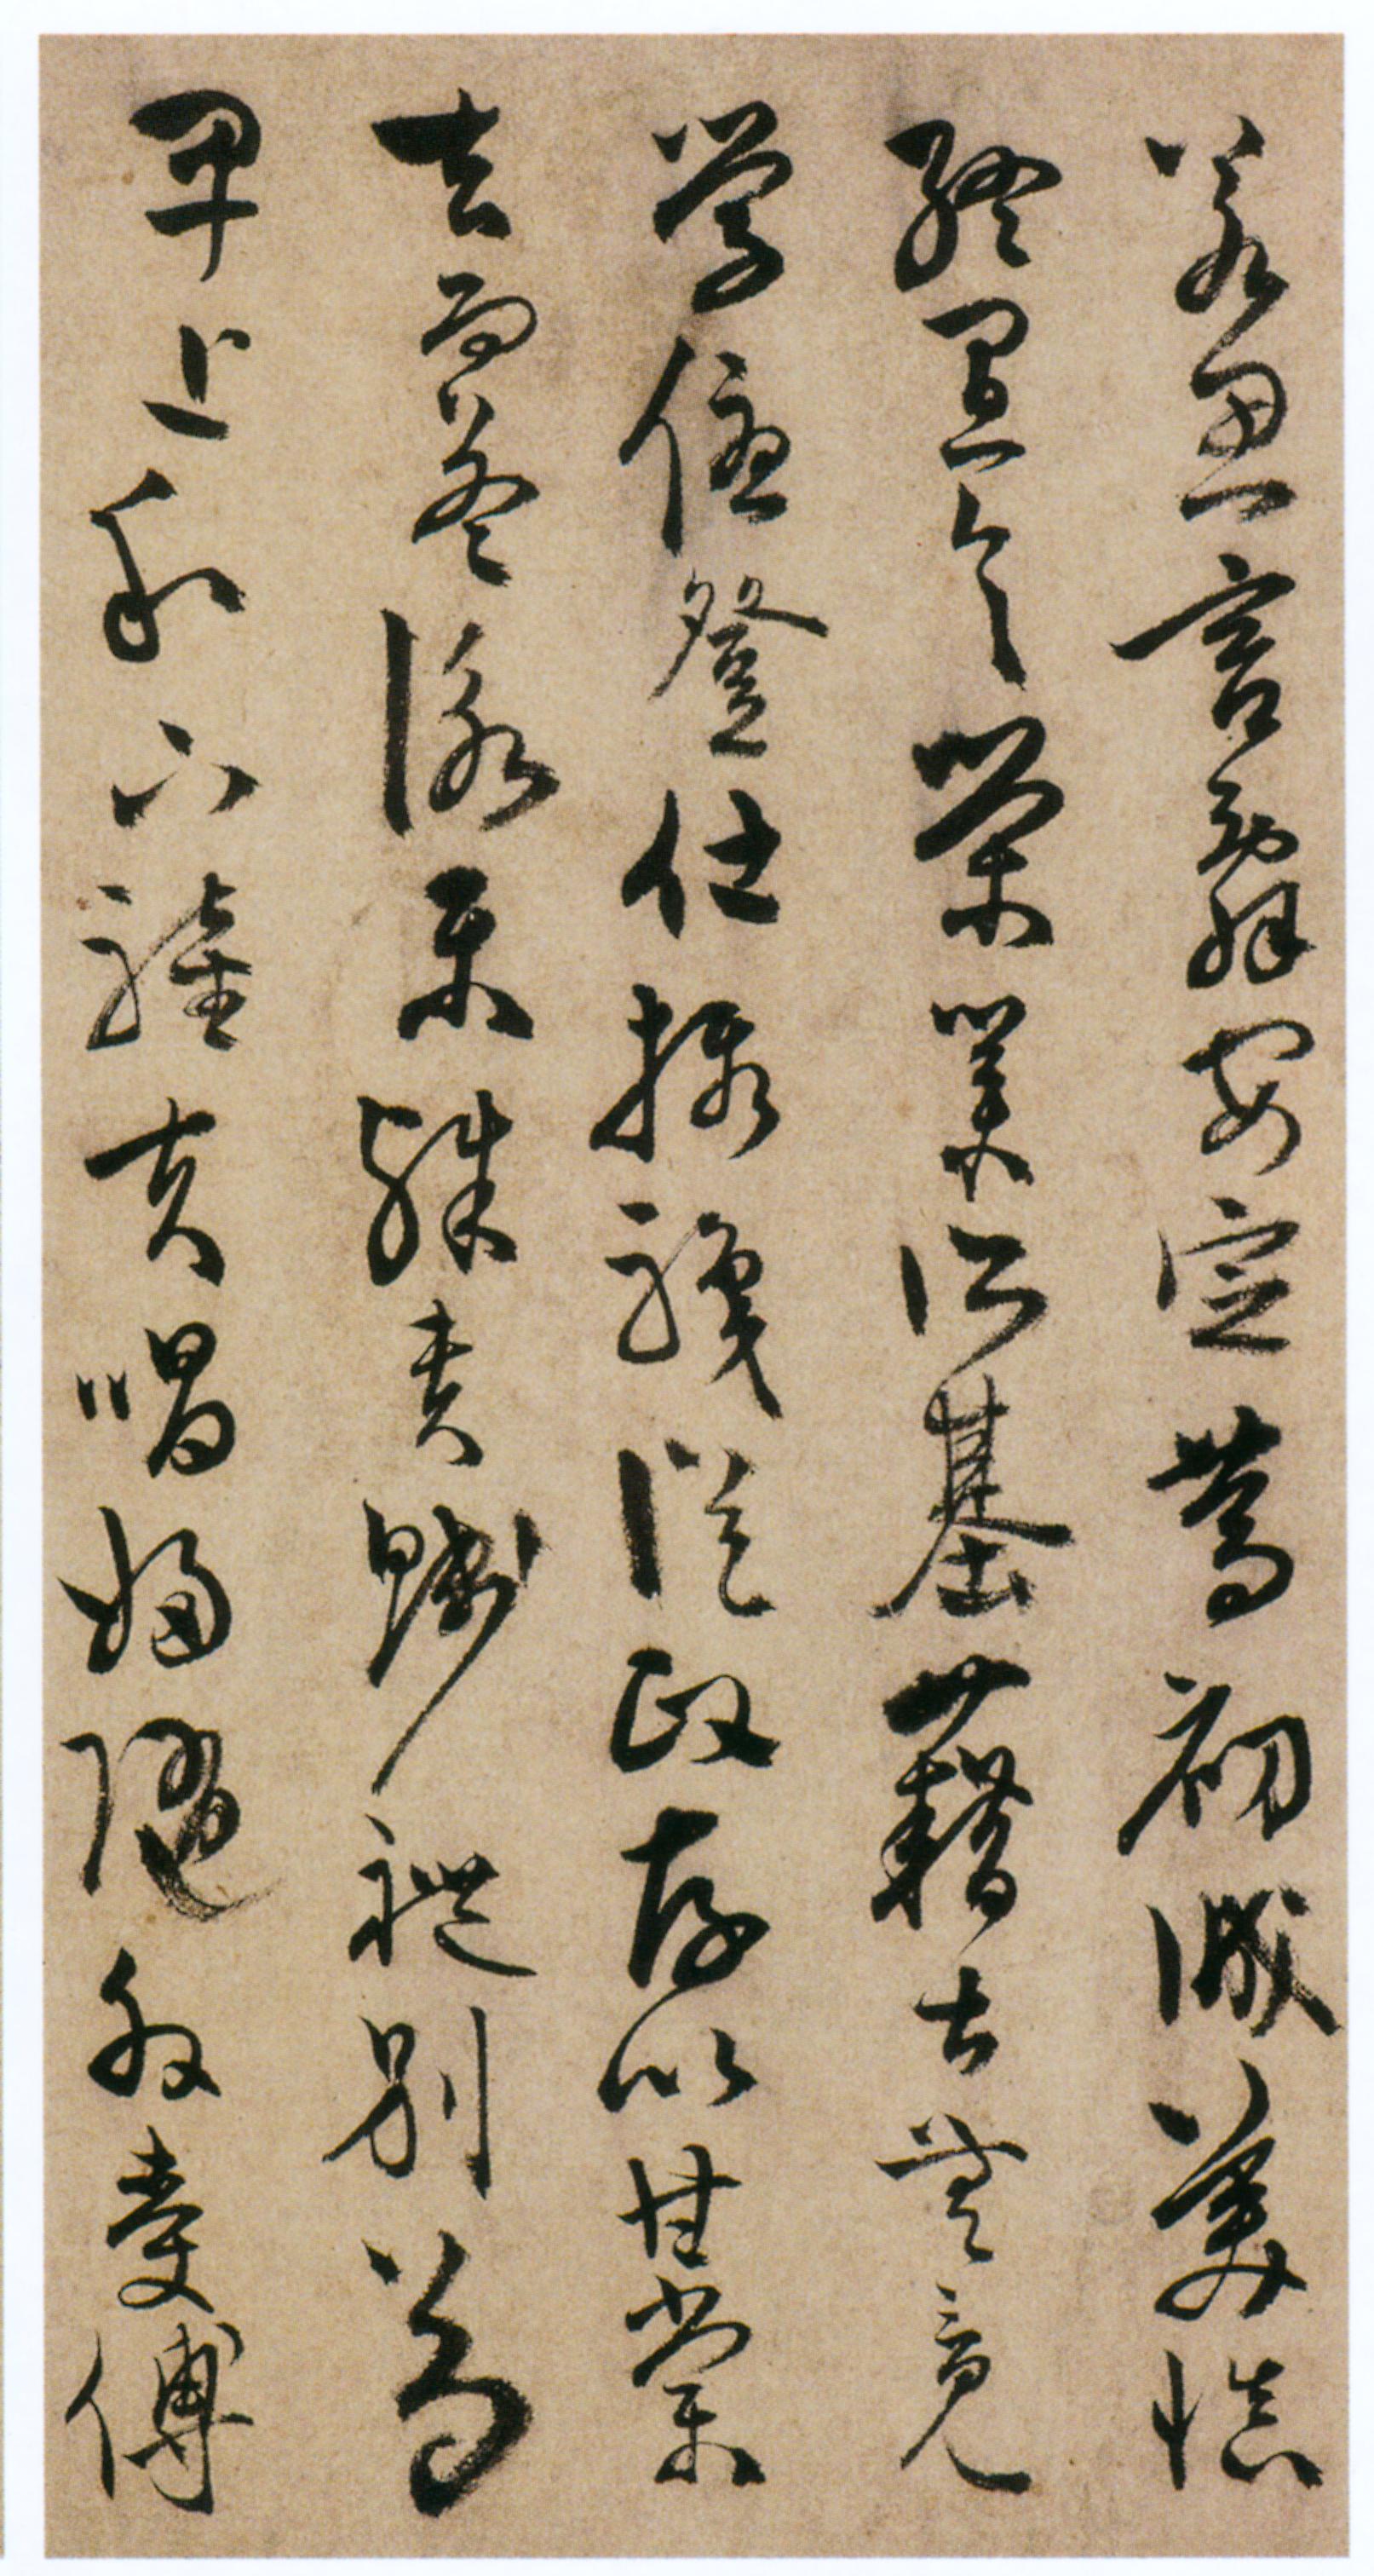 若思言辭安定篤初誠美慎
終宜令榮業所基藉甚無竟
學優登仕攝職從政存以甘棠
去而益詠樂殊貴賤禮別尊
卑上和下睦夫唱婦隨外受傅